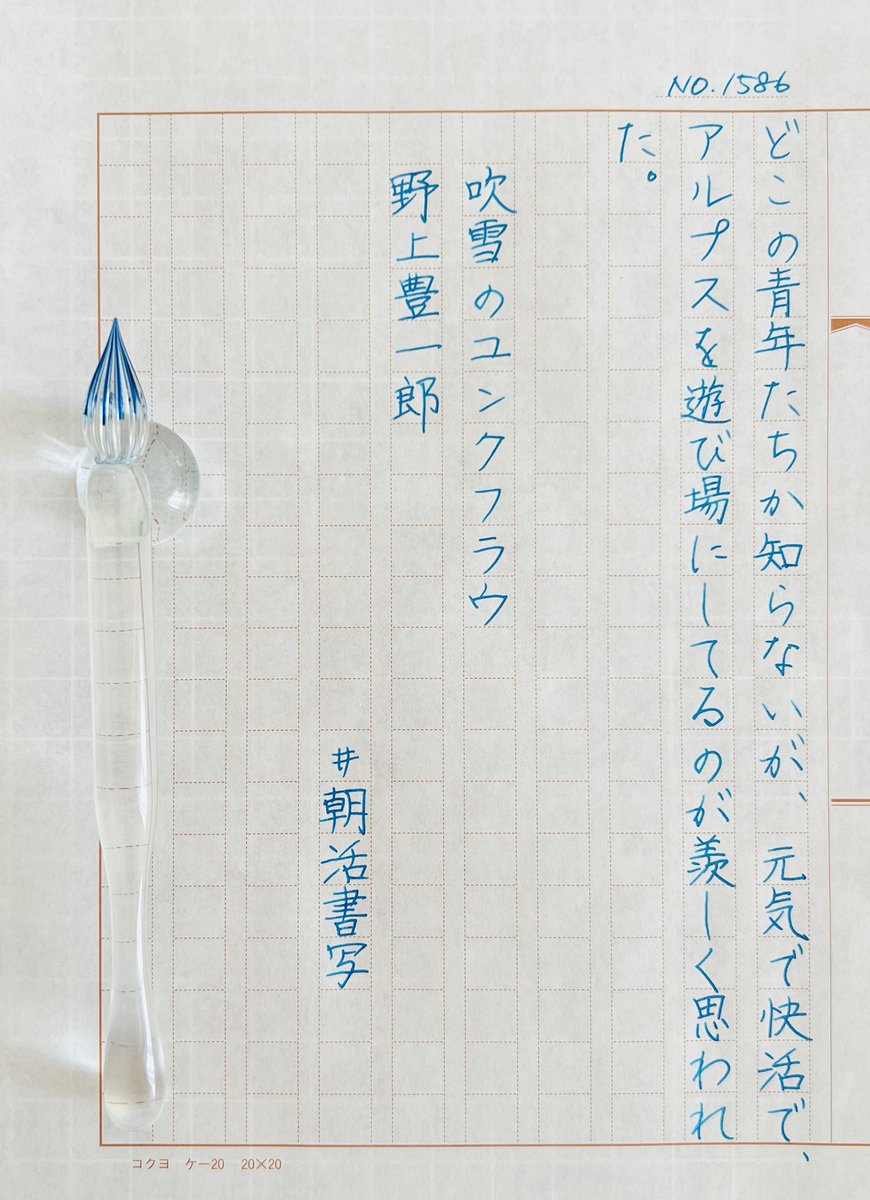 NO.1586
どこの青年たちか知らないが、元気で快活で、
アルプスを遊び場にしてるのが羨しく思われ
た。
吹雪のユンクフラウ
野上豊一郎
#朝活書写
コクヨ ケー20 20×20